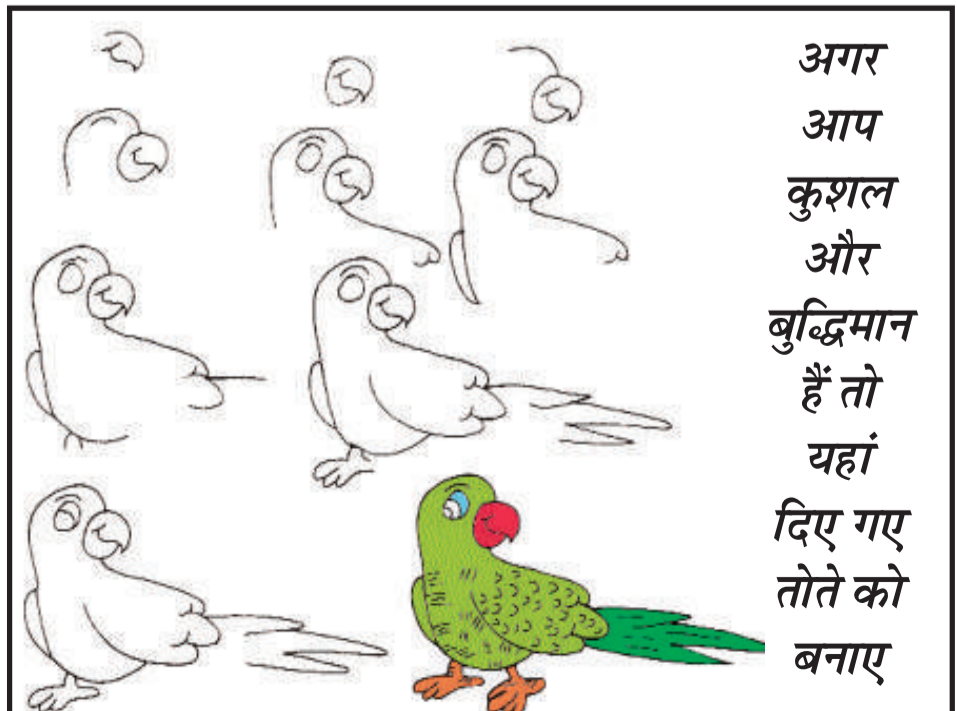 अगर
आप
कुशल
और
बुद्धिमान
हैं तो
यहां
दिए गए
तोते को
बनाए